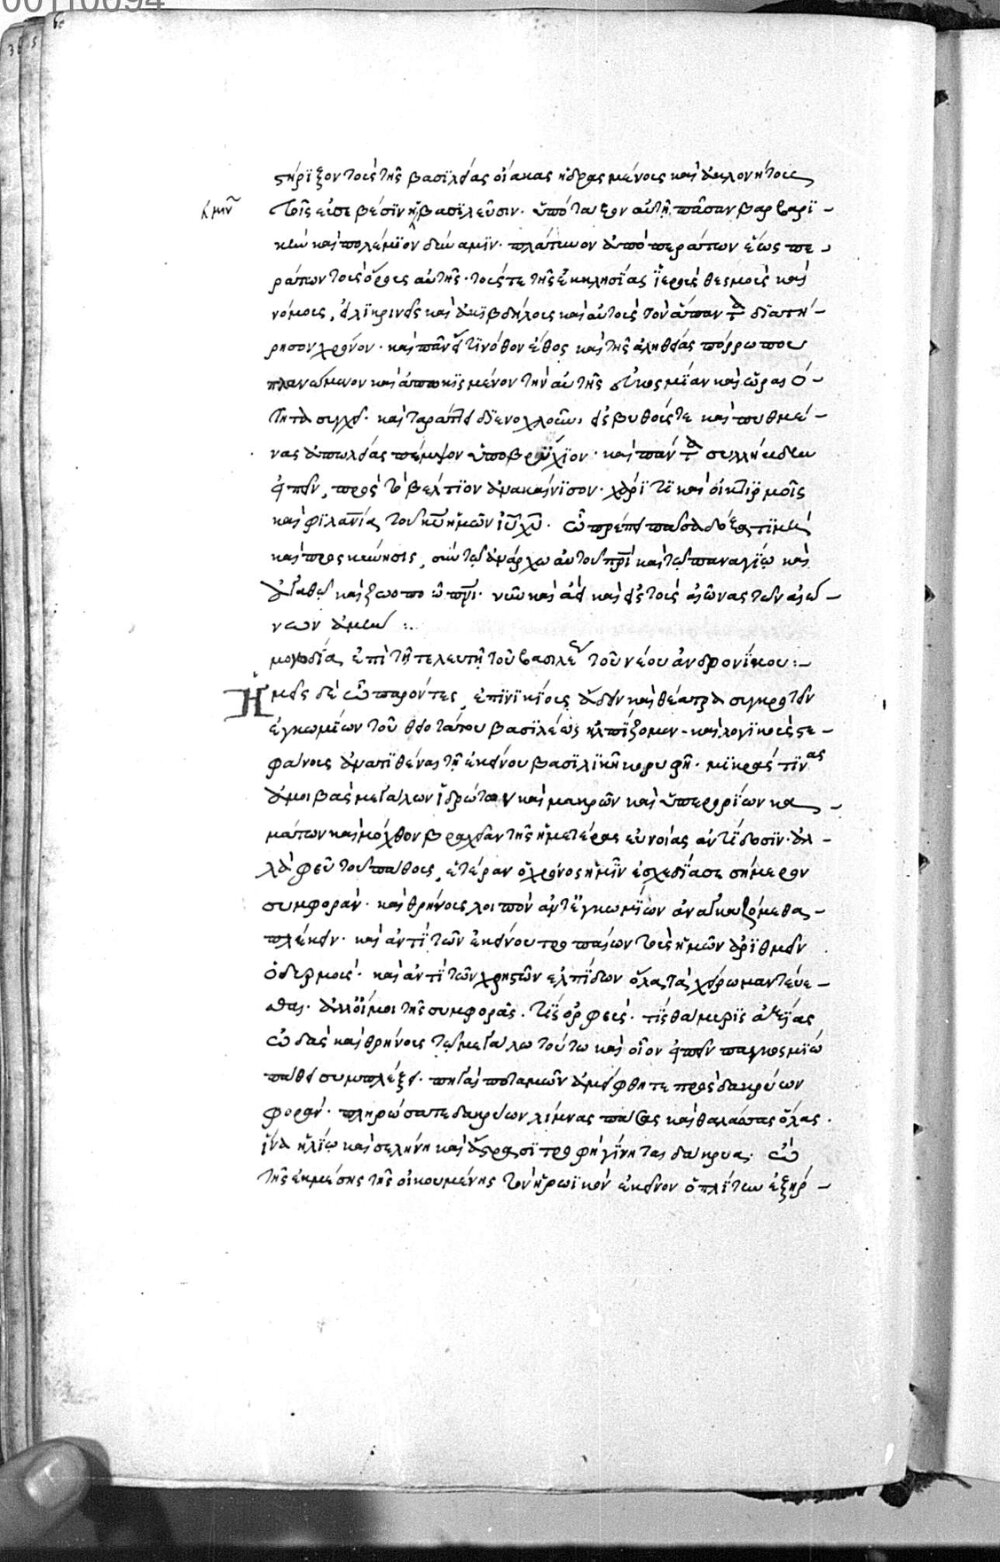 00110094
στήριξον τοὺς τῆς βασιλείας οἴακας ἡδρασμένους καὶ ἀκλονήτους
τοῖς εὐσεβέσιν ἡμῶν βασιλεῦσιν. ὑπόταξον αὐτῇ πᾶσαν βαρβαρι -
κὴν καὶ πολέμιον δύναμιν. πλάτυνον ἀπὸ περάτων ἕως πε -
ράτων τοὺς ὅρους αὐτῆς. τούς τε τῆς ἐκκλησίας ἱεροὺς θεσμοὺς καὶ
νόμους, εἰλικρινεῖς καὶ ἀκιβδήλους καὶ αὐτοὺς τὸν ἅπαντα διατή -
ρησον χρόνον. καὶ πᾶν εἴ τι νόθον ἔθος καὶ τῆς ἀληθείας πόρρω που
πλανώμενον καὶ ἀπῳκισμένον τὴν αὐτῆς εὐκοσμίαν καὶ ὡραιό -
τητα συγχεῖ καὶ ταράττει διενοχλοῦν, εἰς βυθούς τε καὶ πυθμέ -
νας ἀπωλείας πέμψον ὑποβρύχιον. καὶ πάντα συλλήβδην
εἰπεῖν, πρὸς τὸ βέλτιον ἀνακαίνισον. χάριτι καὶ οἰκτιρμοῖς
καὶ φιλανίας τοῦ κυ ἡμῶν ιυ χυ. ᾧ πρέπει πᾶσα δόξα τιμὴ
καὶ προσκύνησις, σὺν τῷ ἀνάρχῳ αὐτοῦ πρι καὶ τῷ παναγίῳ καὶ
ἀγαθῷ καὶ ζωοποιῷ πνι. νῦν καὶ ἀεὶ καὶ εἰς τοὺς αἰῶνας τῶν αἰώ -
νων ἀμήν :.
μονῳδία ἐπὶ τῇ τελευτῇ τοῦ βασιλέως τοῦ νέου ἀνδρονίκου : -
Ἡμεῖς δὲ ὦ παρόντες, ἐπινικίους ᾄδειν καὶ θέατρα συγκροτεῖν
ἐγκωμίων τοῦ θειοτάτου βασιλέως ἠλπίζομεν - καὶ λογικοὺς στε -
φάνους ἀνατιθέναι τῇ ἐκείνου βασιλικῇ κορυφῇ. μικράς τινας
ἀμοιβὰς μεγάλων ἱδρώτων καὶ μακρῶν καὶ ὑπερορίων κα -
μάτων καὶ μόχθον βραχεῖαν τῆς ἡμετέρας εὐνοίας ἀντίδοσιν. ἀλ -
λὰ φεῦ τοῦ πάθους, ἑτέραν ὁ χρόνος ἡμῖν ἐσχεδίασε σήμερον
συμφοράν. καὶ θρήνους λοιπὸν ἀντ' ἐγκωμίων ἀναγκαζόμεθα -
πλέκειν. καὶ ἀντὶ τῶν ἐκείνου τροπαίων τοὺς ἡμῶν ἀριθμεῖν
ὀδυρμούς. καὶ ἀντὶ τῶν χρηστῶν ἐλπίδων ὅλας τὰ χείρω μαντεύε -
σθαι. ἀλλ' οἴμοι τῆς συμφορᾶς. τίς ὀρφεὺς. τίς θάμυρις ἀξίας
ᾠδὰς καὶ θρήνους τῷ μεγάλῳ τούτῳ καὶ οἷον εἰπεῖν παγκοσμίῳ
πάθει συμπλέξει. πηγαὶ ποταμῶν ἀμείφθητε πρὸς δακρύων
φοράν. πληρώσατε δακρύων λίμνας πάσας καὶ θαλάσσας ὅλας.
ἵνα ἡλίῳ καὶ σελήνῃ καὶ ἄστρασι τροφὴ γίνηται δάκρυα. ὢ
τῆς ἐκ μέσης τῆς οἰκουμένης τὸν ἡρωϊκὸν ἐκεῖνον ὁπλίτην ἐξηρ -